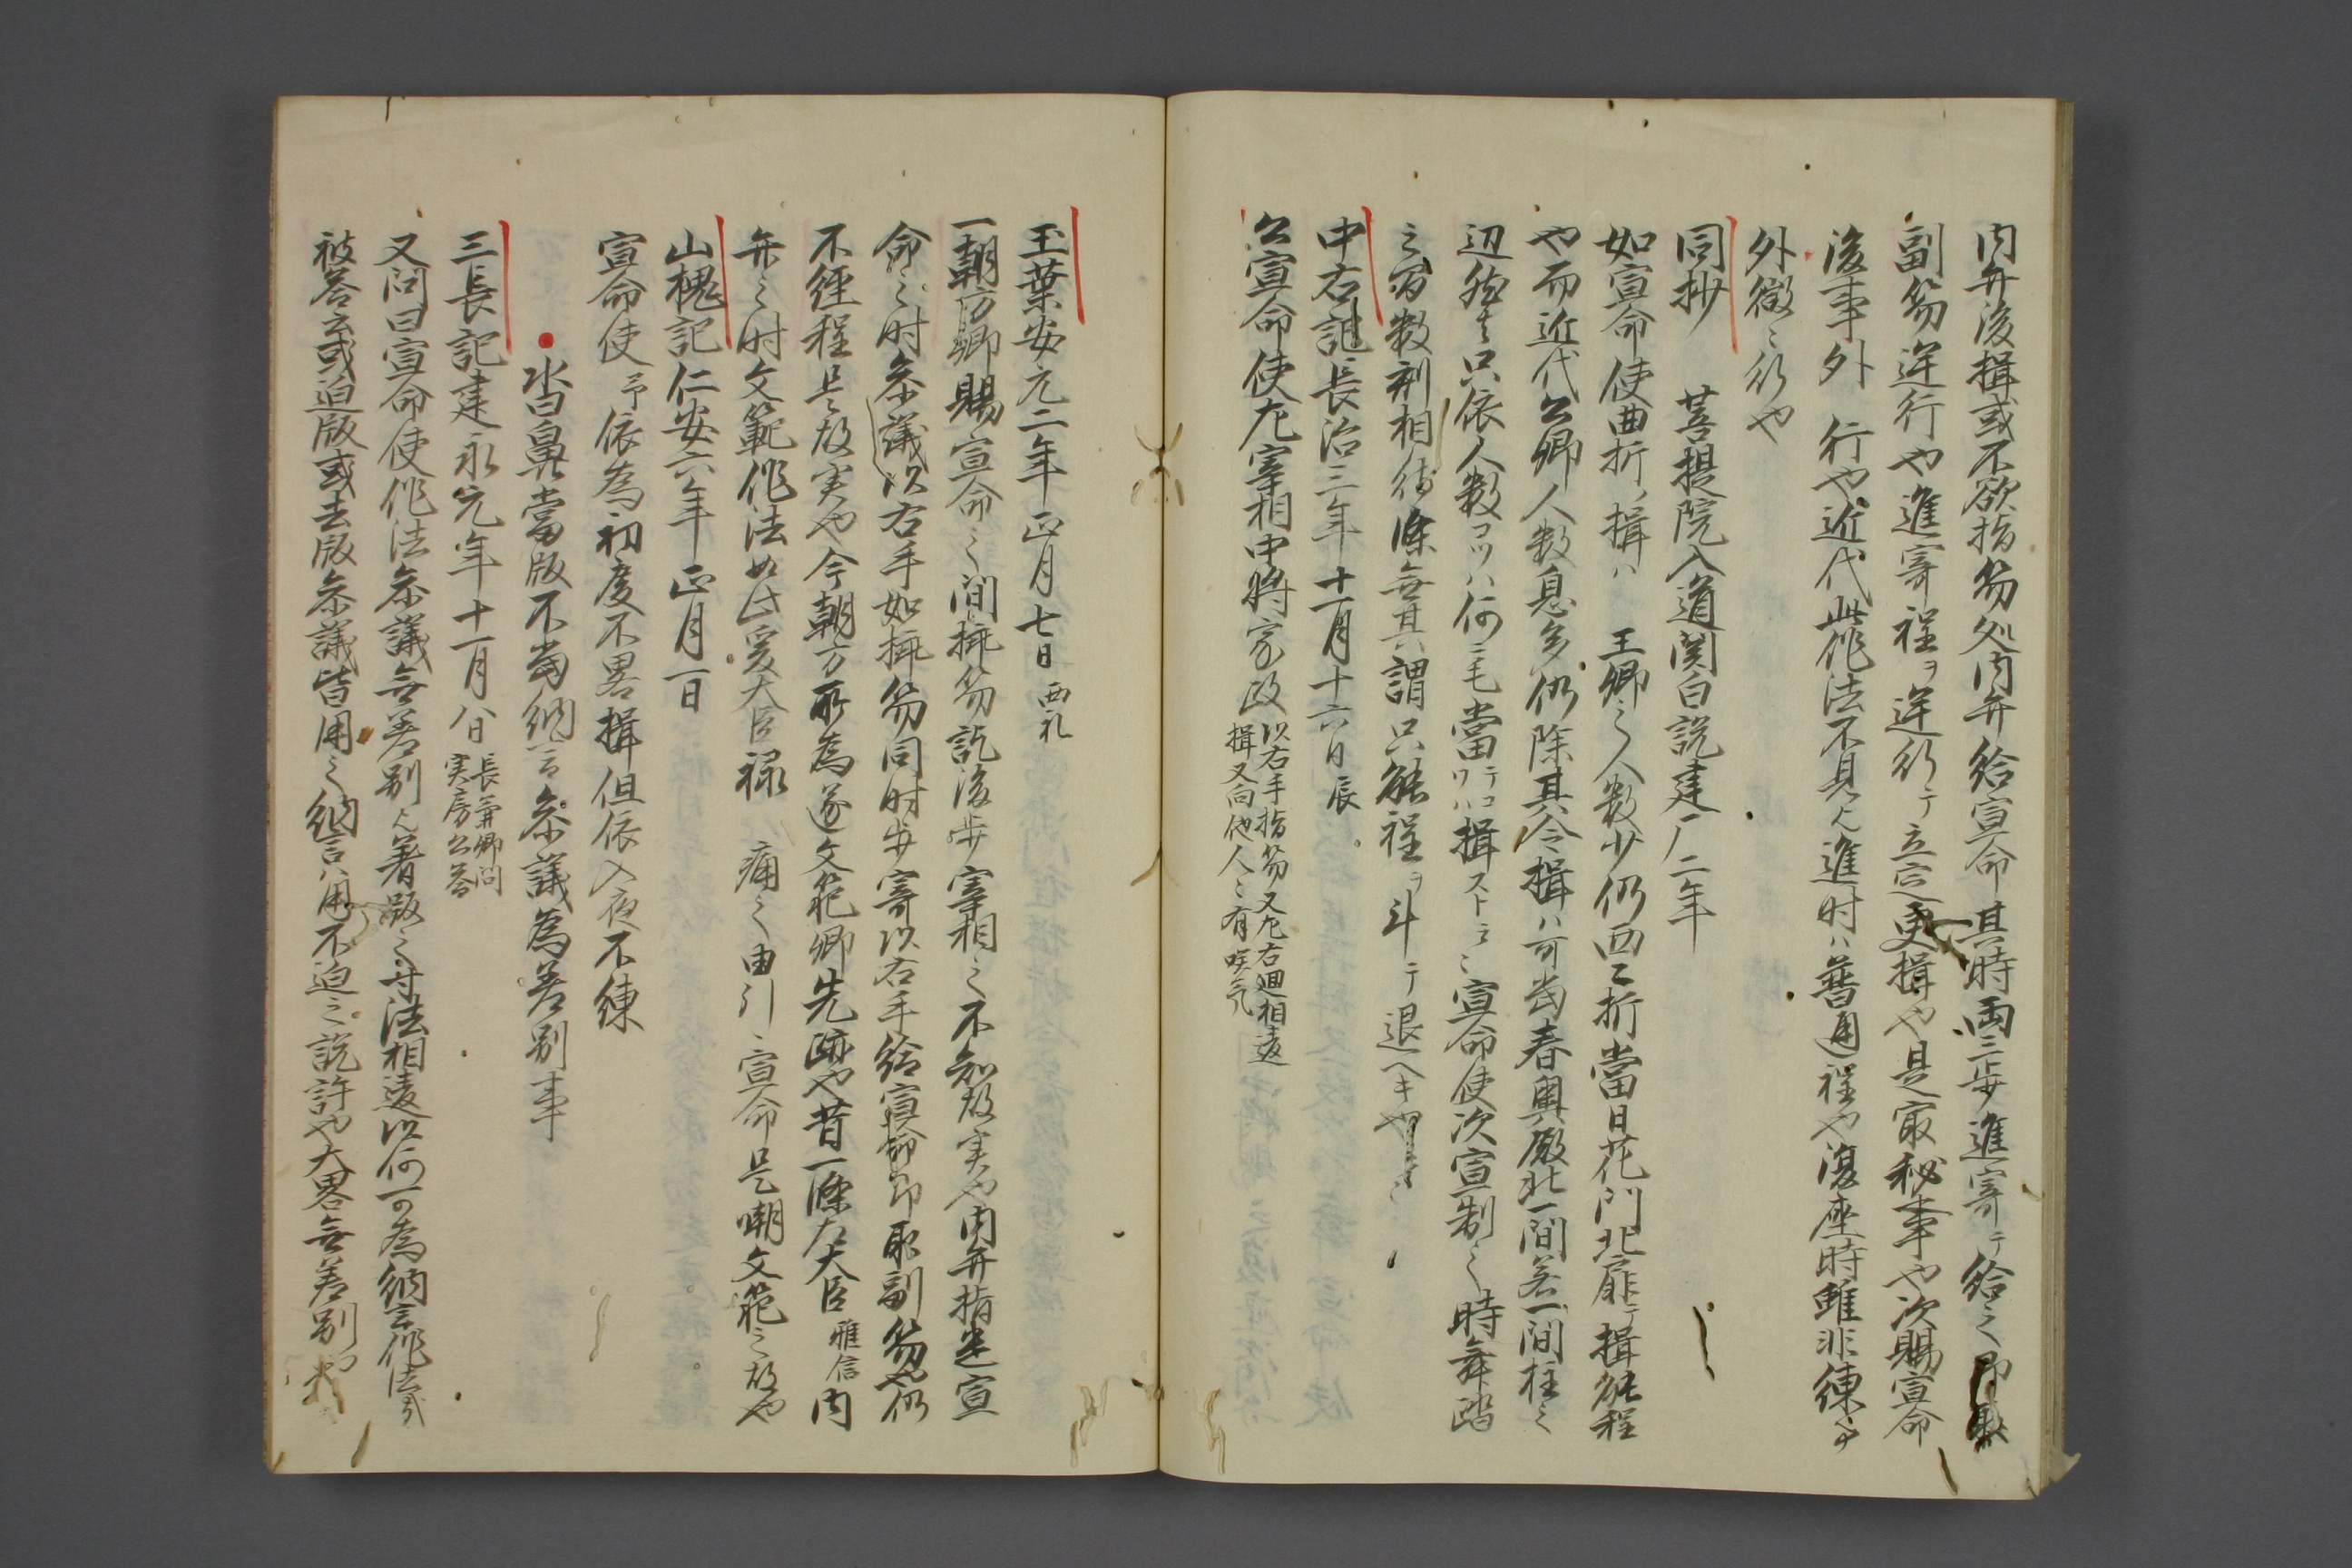 内弁後揖或不欲指笏処内弁給宣命其時両三歩進寄テ給之即取
副笏逆行や進寄程ヲ逆行テ立定更揖や是最秘事や次賜宣命
後事外 行や近代此作法不見ミ進时ハ普通程や復座時雖非練事
外微ミ行や
同抄 菩提院入道関白説建厂二年
如宣命使曲折ノ揖ハ 王卿之人数少仍西ニ折當日花门北扉テ揖能程
や而近代公卿人数息多仍除其令揖ハ可当春興殿北一间若一间柱之
辺然ニ只依人数コソハ何ニ毛當テコソハ揖ストモ宣命使次宣制之時舞踏
之間数剋相待條無其謂只能程ヲ斗テ退ヘキや
中右記長治三年十一月十六日辰
公宣命使左宰相中将家政 以右手指笏又左右廻相違
揖又向他人ミ有咲氣
玉葉安元二年正月七日 西礼
一朝方卿賜宣命之间揷笏訖後歩宰相之不知故実や内弁指遣宣
命之时参議以右手如揷笏同时歩寄以右手給宣命即取副笏也仍
不経程是故実や今朝方所為逐文範卿先跡や昔一條左大臣 雅信 内
弁之时文範作法如此爰大臣禄 痛之由引ミ宣命是嘲文範之故や
山槐記仁安六年正月一日
宣命使予依為初度不畧揖但依入夜不練
沓鼻當版不当納言参議為差別事
三長記建永元年十一月八日 長兼卿问
実房公答
又问曰宣命使作法参議無差別ミ着版之寸法相違以何可為納言作法哉
被答云或迫版或去版参議皆用之納言ハ用不迫之説許や大畧無差別